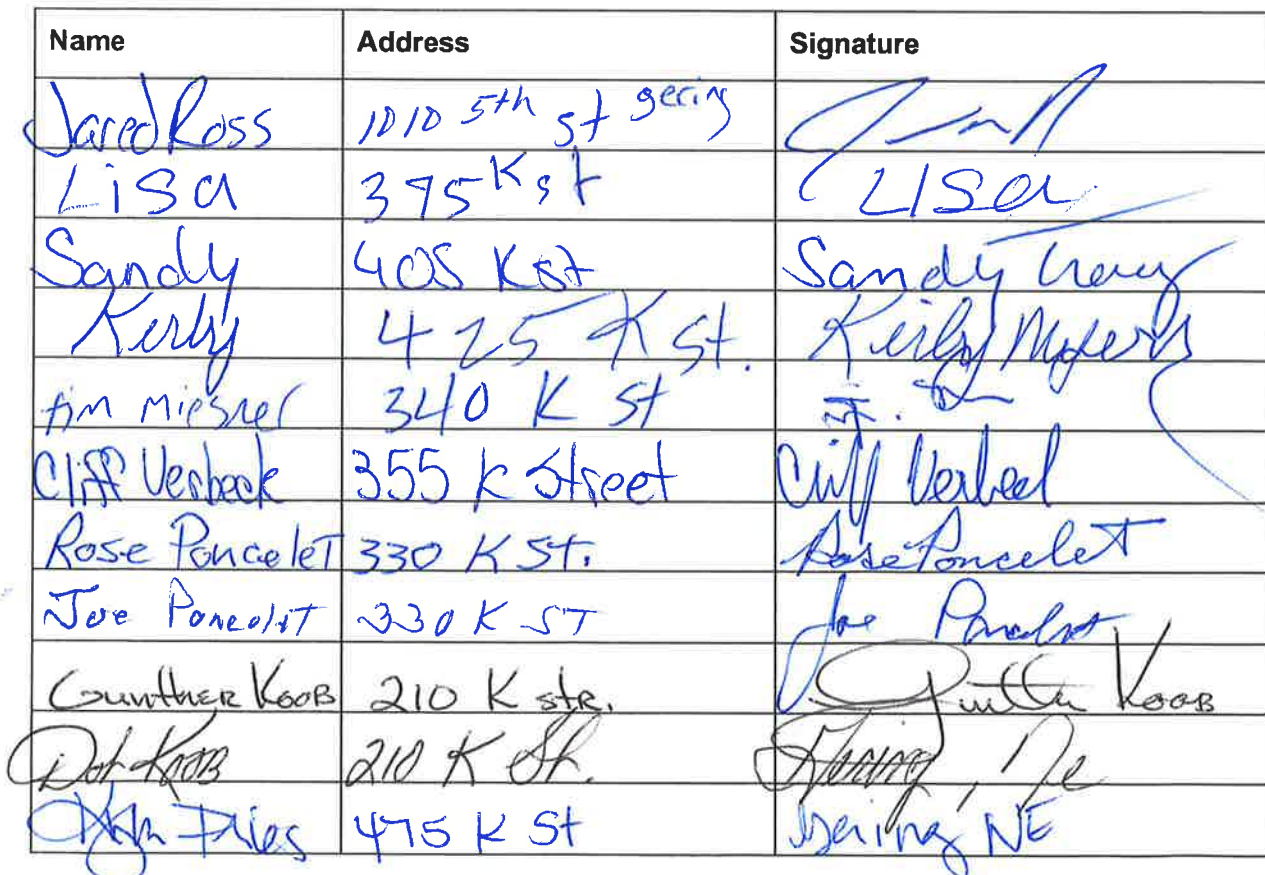 Name Address Signature
Jared Ross 1010 5th st gering
Lisa 375 K st LISa
Sandy 405 K st Sandy
Kerby 425 K St. Kerby Myers
tim miesner 340 K St
Cliff Verbeck 355 K Street Cliff Verbeck
Rose PonceleT 330 K St. Rose PonceleT
Joe Poncelet 330 K ST Joe Poncelet
GuntHER KOOB 210 K stR. KOOB
Dot KOOB 210 K St. Gering, Ne
475 K St Gering NE